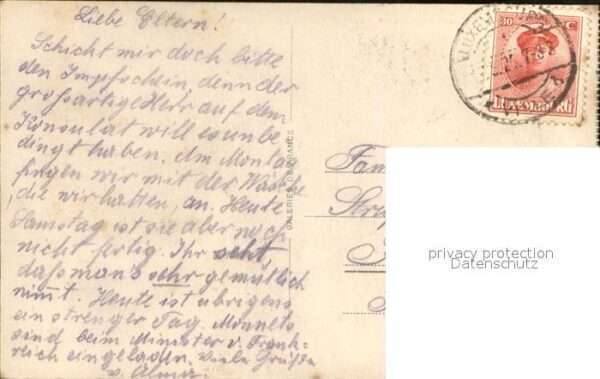 Liebe Eltern!
Schickt mir doch bitte
den Impfschein, denn der
großartige Herr auf dem
Konsulat will es unbe
dingt haben. Am Montag
fingen wir mit der Wäsche
, die wir hatten, an. Heute
Samstag ist sie aber noch
nicht fertig. Ihr seht,
daß man's sehr gemütlich
nimmt. Heute ist übrigens
ein strenger Tag. Monnets
sind beim Minister v. Frank-
reich eingeladen. Viele Grüße
v. Alma.
GALERIES DE FRANCE
30 C
LUXEMBOURG
Fam
privacy protection
Datenschutz